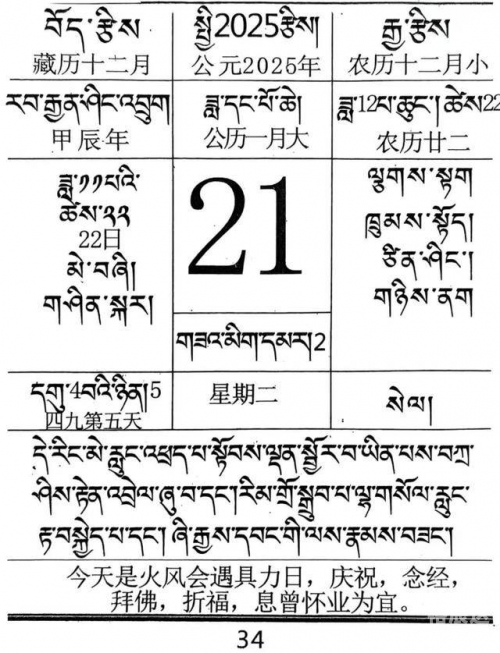 བོད་རྩིས
སྤྱི2025རྩིས།
རྒྱ་རྩིས
藏历十二月
公元2025年
农历十二月小
རབ་རྒྱན་ཤིང་འབྲུག
ཟླ་དང་པོ་ཆེ།
ཟླ་12པ་ཆུང་། ཚེས22
甲辰年
公历一月大
农历廿二
ཟླ་༡༡པའི་
ཚེས་༢༢
22日
མེ་བཞི།
གཤིན་སྐར།
21
ལྕགས་སྟག
ཁྲུམས་སྟོད།
ཙིན་ཤིང་།
གཉིས་ནག
གཟའ་མིག་དམར།2
དགུ་4བའི་ཉིན།5
四九第五天
星期二
སེལ།
དེ་རིང་མེ་རླུང་འཕྲད་པ་སྟོབས་ལྡན་སྦྱོར་བ་ཡིན་པས་བཀྲ་
ཤིས་རྟེན་འབྲེལ་ཞུ་བ་དང་།རིམ་གྲོ་སྒྲུབ་པ་ལྷ་གསོལ་རླུང་
རྟ་བསྐྱེད་པ་དང་། ཞི་རྒྱས་དབང་གི་ལས་རྣམས་བཟང་།
今天是火风会遇具力日，庆祝，念经，
拜佛，折福，息曾怀业为宜。
34